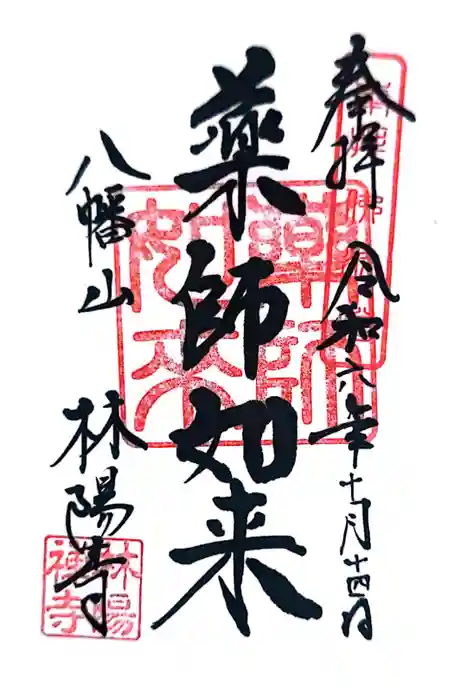 奉拝
令和六年十月十四日
薬師如来
八幡山
林陽寺
薬師
如来
林陽
禅寺